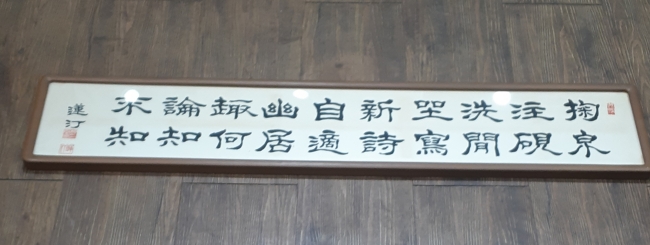 掬泉
注硯
洗閒
坐寫
新詩
自適
幽居
趣何
論知
不知
蓮汀